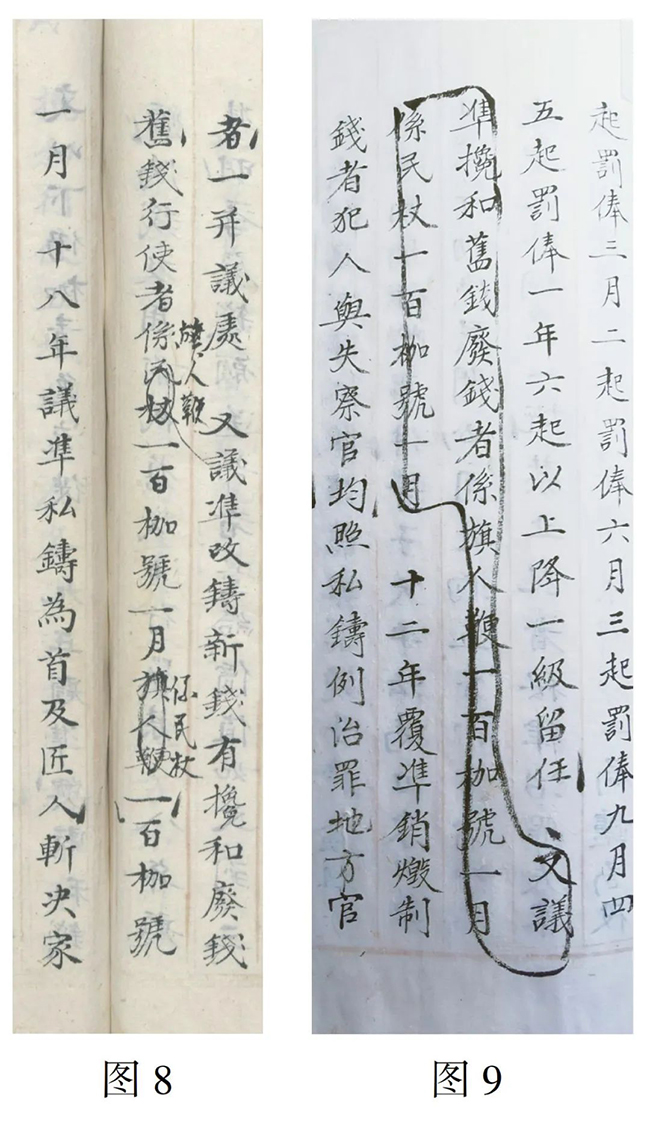 者一并議處 又議准改鑄新錢有攙和廢錢
舊錢行使者係民杖一百枷號一月旗人鞭一百枷號
旗人鞭
係民杖
一月十八年議准私鑄為首及匠人斬决家
图 8
起罰俸三月二起罰俸六月三起罰俸九月四
五起罰俸一年六起以上降一級留任 又議
準攙和舊錢廢錢者係旗人鞭一百枷號一月
係民杖一百枷號一月 十二年覆準銷燬制
錢者犯人與失察官均照私鑄例治罪地方官
图 9